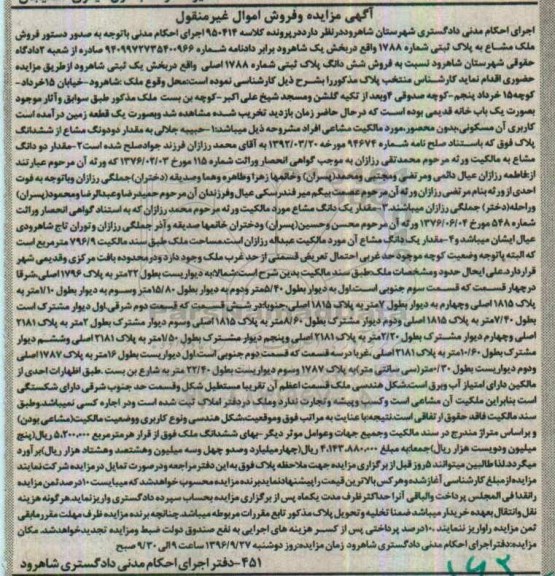 آگهی مزایده وفروش اموال غیرمنقول
اجرای احکام مدنی دادگستری شهرستان شاهرود درنظر دارد در پرونده کلاسه ۹۵۰۴۱۴ اجرای احکام مدنی باتوجه به صدور دستور فروش
ملک مشاع به پلاک ثبتی شماره ۱۷۸۸ واقع دربخش یک شاهرود برابر دادنامه شماره ۹۴۰۹۹۷۲۷۳۵۴۰۰۹۶۶ صادره از شعبه ۲دادگاه
حقوقی شهرستان شاهرود نسبت به فروش شش دانگ پلاک ثبتی شماره ۱۷۸۸ اصلی واقع دربخش یک ثبتی شاهرود ازطریق مزایده
حضوری اقدام نماید کارشناس منتخب پلاک مذکوررا بشرح ذیل کارشناسی نموده است:محل وقوع ملک :شاهرود-خیابان ۱۵خرداد-
کوچه۱۵ خرداد پنجم-کوچه صدوقی ۴وبعد از تکیه گلشن ومسجد شیخ علی اکبر-کوچه بن بست ملک مذکور طبق سوابق وآثار موجود
بصورت یک باب خانه قدیمی بوده است که درحال حاضر زمان بازدید تخریب شده مشاهده شد وبصورت یک قطعه زمین درآمده است
کاربری آن مسکونی،بدون محصور،مورد مالکیت مشاعی افراد مشروحه ذیل میباشند:۱-حبیبه جلالی به مقدار دودونگ مشاع از ششدانگ
پلاک فوق که باستناد صلح نامه شماره ۹۴۶۷۴ مورخه ۱۳۹۲/۰۳/۲۰ به آقای محمد رزازان فرزند جوادصلح شده است۲-مقدار دو دانگ
مشاع به مالکیت ورثه مرحوم محمدتقی رزازان به موجب گواهی انحصار وراثت شماره ۱۱۵ مورخ ۱۳۷۶/۰۲/۰۳ که ورثه آن مرحوم عبارتند
از:فاطمه رزازان عیال دائمی ومرتضی ومجتبی ومحمد(پسران) وخانمها زهرا وطاهره وهما وصدیقه (دختران)جملگی رزازان وباتوجه به فوت
احدی از ورثه بنام مرتضی رزازان ورثه آن مرحوم عصمت بیگم میر فندرسکی عیال وفرزندان آن مرحوم حمیدرضا وعبدالرضا ومحمود(پسران)
وراحله(دختر) جملگی رزازان میباشند.۳-مقدار یک دانگ مشاع مورد مالکیت ورثه مرحوم محمد رزازان که به استناد گواهی انحصار وراثت
شماره ۵۴۸ مورخ ۱۳۷۶/۰۶/۰۴ ورثه آن مرحوم محسن وحسین(پسران) ودختران خانمها صدیقه وآذر جملگی رزازان وتوران تاج شاهرودی
عیال ایشان میباشد و۴-مقدار یک دانگ مشاع آن مورد مالکیت عبداله رزازان است.مساحت ملک طبق سند مالکیت ۷۹۶/۹ مترمربع است
که البته باتوجه وضعیت کوچه موجود حد غربی احتمال تعریض قسمتی از حد غرب ملک وجود دارد ودرمحدوده بافت مرکزی وقدیمی شهر
قرارداردعلی ایحال حدود ومشخصات ملک طبق سند مالکیت بدین شرح است:شمالابه دیواریست بطول ۲۲متر به پلاک ۱۷۹۶ اصلی شرقا
درچهار قسمت که قسمت سوم جنوبی است:اول به دیوار بطول ۵/۴۰متر دوم به دیوار بطول ۱۵/۸۰متر وسوم به دیوار بطول ۱/۱۰متر به
پلاک ۱۸۱۵ اصلی وچهارم به دیوار بطول ۷متر به پلاک ۱۸۱۵ اصلی جنوبادر شش قسمت که قسمت دوم شرقی.اول دیوار مشترک است
بطول ۷/۴۰متر به پلاک ۱۸۱۵ اصلی ودوم دیوار مشترک بطول ۸/۶۰متر به پلاک ۱۸۱۵ اصلی وسوم دیوار مشترک بطول ۲متر به پلاک ۲۱۸۱
اصلی وچهارم دیوار مشترک بطول ۲/۲۰متر به پلاک ۲۱۸۱ اصلی وپنجم دیوار مشترک بطول ۱/۵۰متر به پلاک ۲۱۸۱ اصلی وششم دیوار
مشترک بطول ۱۰/۶۰متر به پلاک ۲۱۸۱ اصلی.غربا درسه قسمت که قسمت دوم جنوبی است:اول دیواریست بطول ۱۶متر به پلاک ۱۷۸۷ اصلی
ودوم دیواریست بطول ۰/۳۰متر(سی سانتی متر)به پلاک ۱۷۸۷ وسوم دیواریست بطول ۲۲/۴۰ متر به شارع بن بست .طبق اظهارات احدی از
مالکین دارای امتیاز آب وبرق است.شکل هندسی ملک قسمت اعظم آن تقریبا مستطیل شکل وقسمت حد جنوب شرقی دارای شکستگی
است بنابراین ملکیت آن مشاعی است وکسب وپیشه وتجارت ندارد وملک در دفتر املاک ثبت شده است ودر اجاره کسی نمیباشد.وطبق
سند مالکیت فاقد حقوق ارتفاقی است.نتیجه:با عنایت به مراتب فوق وموقعیت،شکل هندسی ونوع کاربری ووضعیت مالکیت(مشاعی بودن)
و براساس متراژ مندرج در سند مالکیت وجمیع جهات وعوامل موثر دیگر-بهای ششدانگ ملک فوق از قرار هرمترمربع ۵.۲۰۰.۰۰۰ ریال(پنج
میلیون ودویست هزار ریال)جمعابه مبلغ ۴.۱۴۳.۸۸۰.۰۰۰ ریال(چهارمیلیارد وصدو چهل وسه میلیون وهشتصد وهشتاد هزار ریال)برآورد
میگردد.لذا طالبین میتوانند ۵روز قبل از برگزاری مزایده جهت ملاحظه پلاک فوق به این دفتر مراجعه ودرصورت تمایل درمزایده شرکت نمایند
مزایده ازمبلغ کارشناسی آغاز شده وهرکس بالاترین قیمت راپیشنهاد نماید برنده مزایده محسوب خواهد شد که میبایست ۱۰درصد ثمن مزایده
رانقدا فی المجلس پرداخت والباقی آنرا حداکثر ظرف مدت یکماه پس از برگزاری مزایده بحساب سپرده دادگستری واریز نماید.هرگونه هزینه
نقل وانتقال بعهده خریدار میباشد ضمنا تخلیه وتحویل پلاک مذکور تابع مقررات مربوطه میباشد.چنانچه برنده مزایده ظرف مهلت مقرر مابقی
ثمن مزایده راواریز ننمایند ۱۰درصد پرداختی پس از کسر هزینه های اجرایی به نفع صندوق دولت ضبط ومزایده تجدیدخواهدشد. مکان
مزایده:دفتراجرای احکام مدنی دادگستری شاهرود زمان مزایده:روز دوشنبه ۱۳۹۶/۹/۲۷ ساعت ۹الی ۹/۳۰ صبح
۴۵۱-دفتر اجرای احکام مدنی دادگستری شاهرود